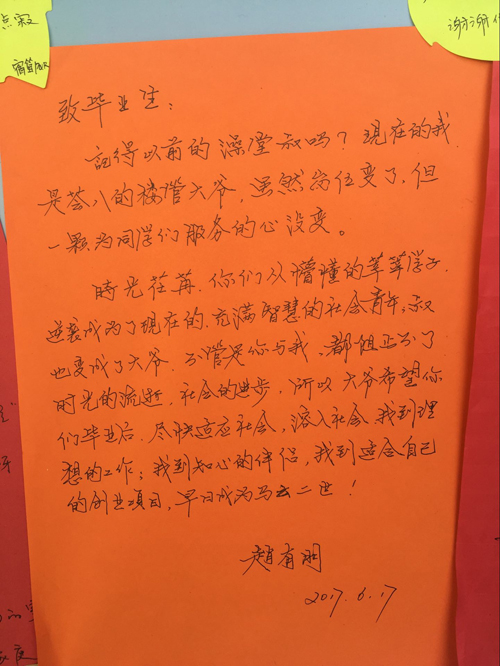 谢谢
致毕业生：
記得以前的澡堂叔吗？現在的我
是荟八的楼管大爷，虽然岗位变了，但
一颗为同学们服务的心没变。
時光荏苒，你们从懵懂的莘莘学子
逆袭成为了現在的、充满智慧的社会青年，叔
也变成了大爷。不管是你与我、都阻止不了
时光的流逝，社会的进步。所以大爷希望你
们毕业后，尽快适应社会，溶入社会，找到理
想的工作；找到知心的伴侣，找到适合自己
的创业项目，早日成为马云二世！
趙有明
2017.6.17